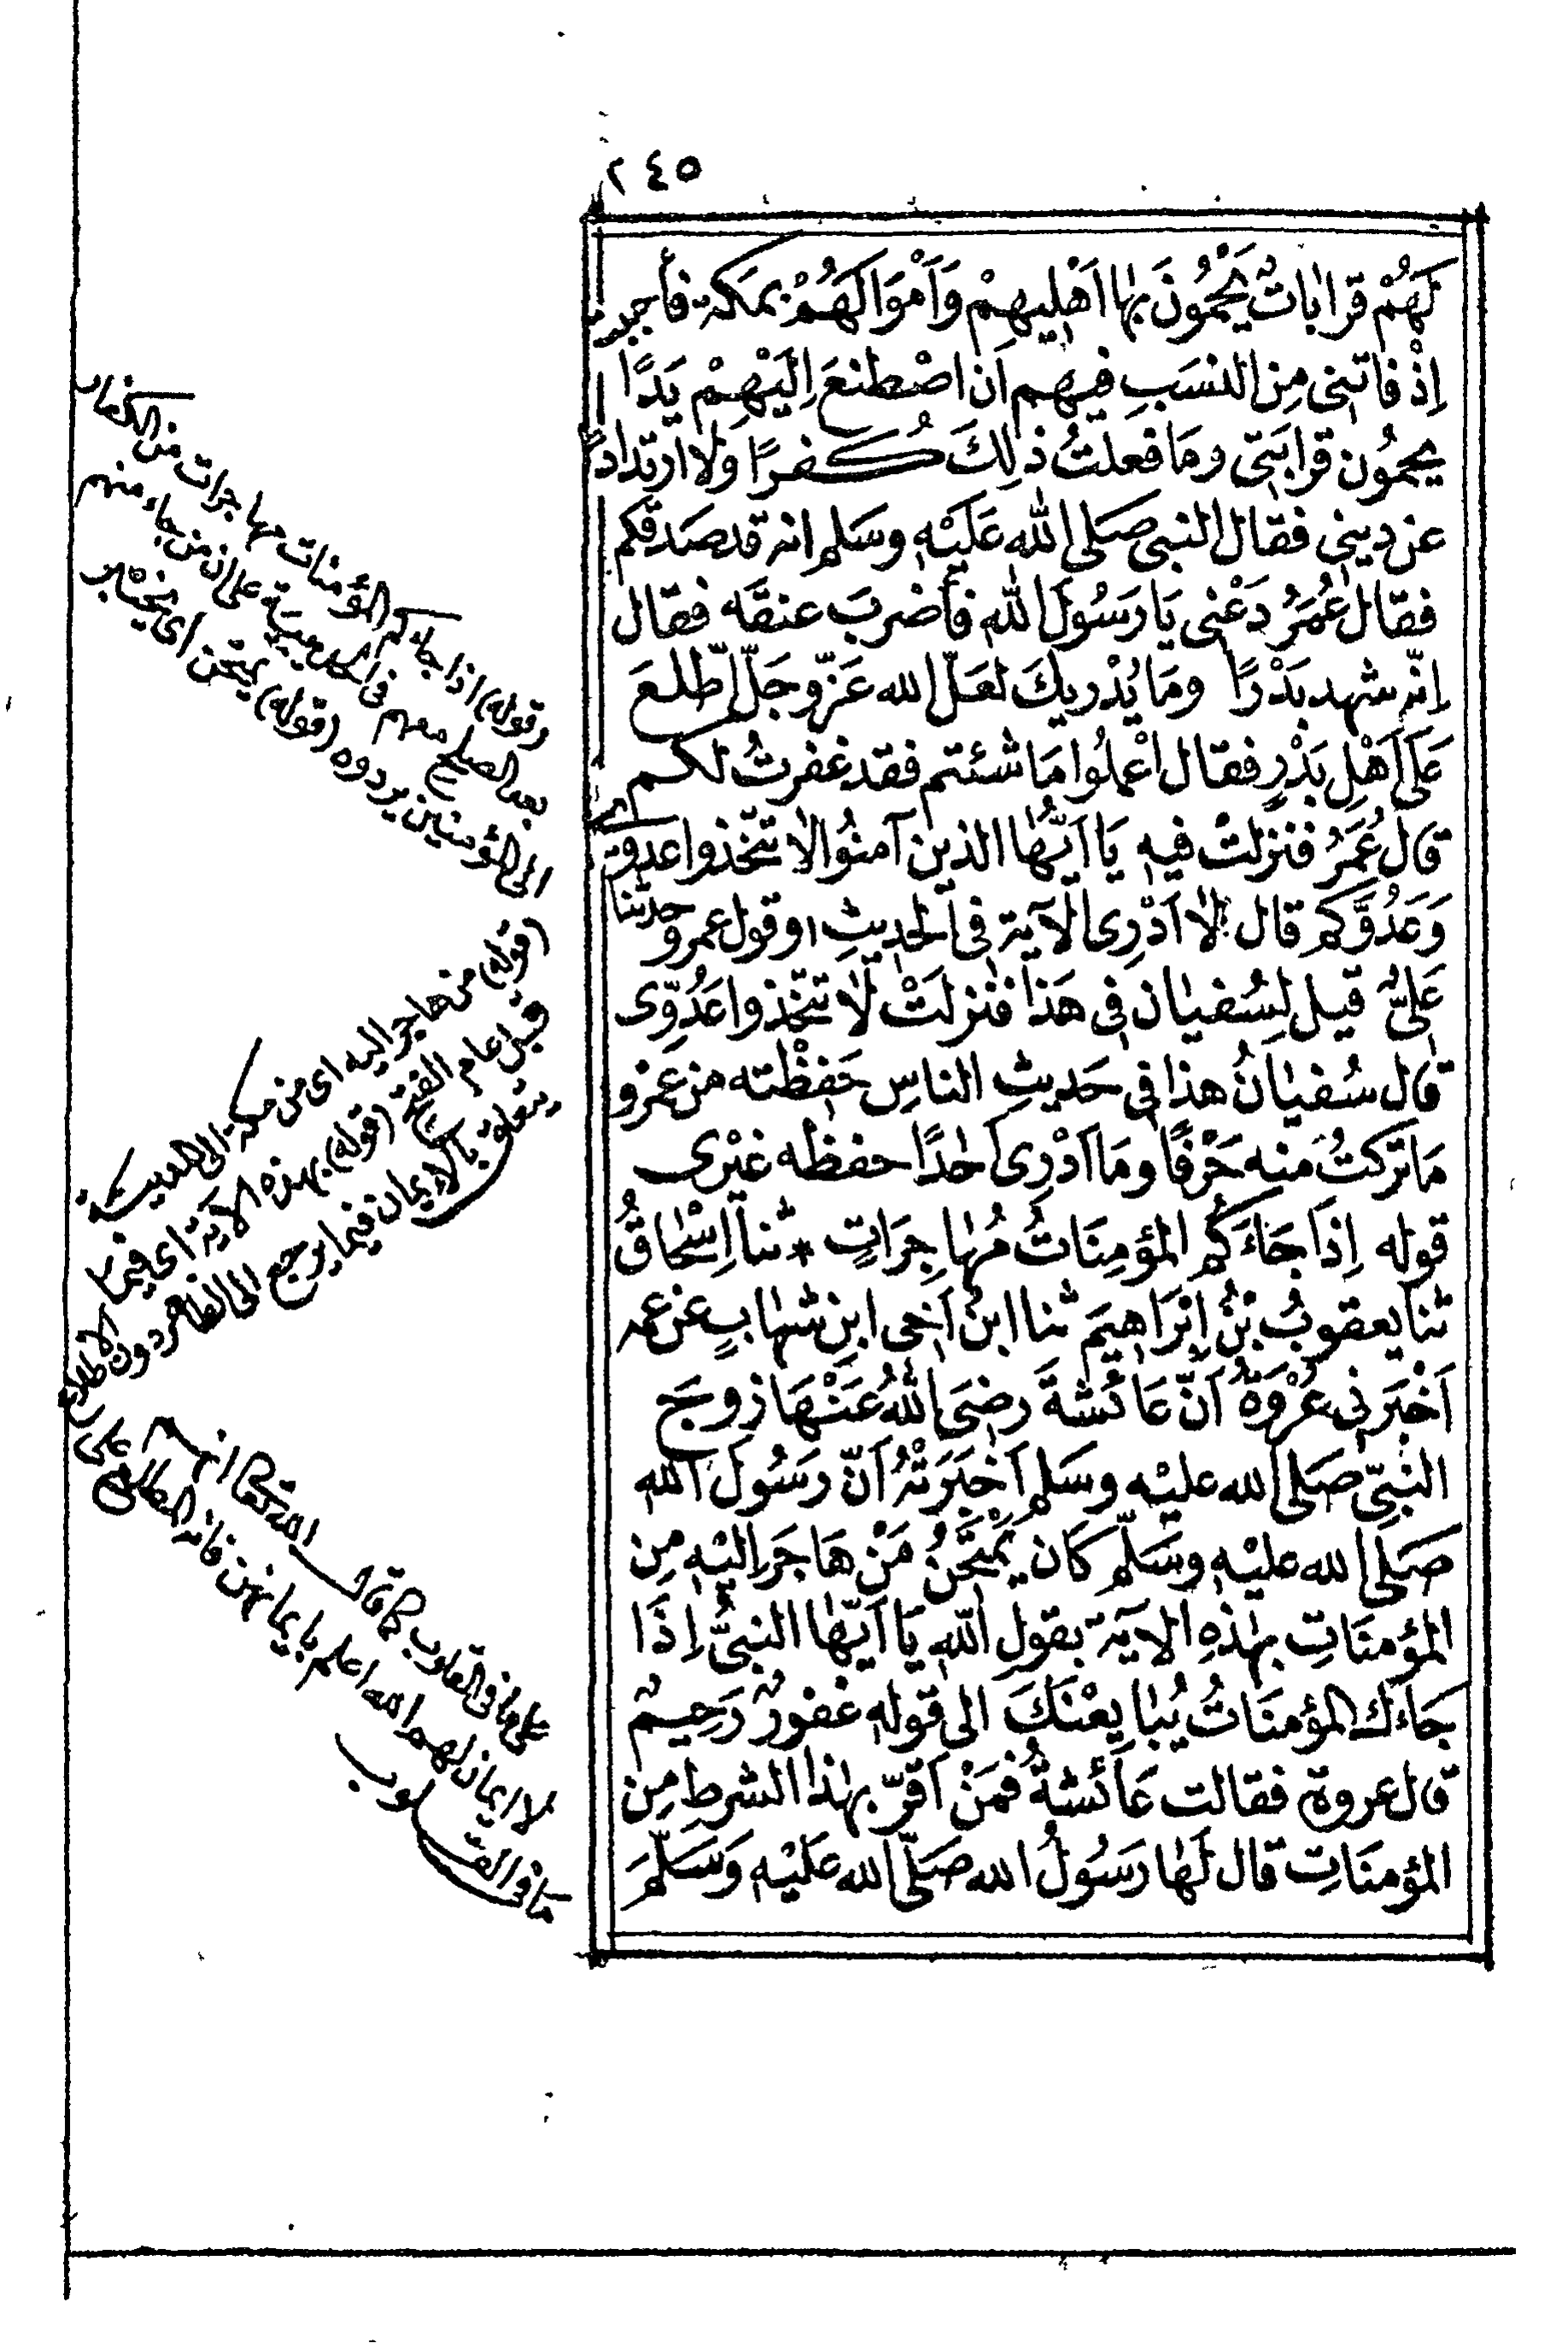 ٢٤٥
لَهُمْ قرابات يَحْمُونَ بها اَهْلِيهِمْ وَاَمْوَالَهُمْ بمكة فأحببت
اِذْ فاتنى مِن النسَبِ فيهم ان اصْطنعَ اِلَيْهِمْ يَدًا
يحمُون قرابتى ومَا فعلتُ ذلِكَ كُفرًا ولا ارتدادًا
عن دينى فقال النبى صَلى الله عَلَيْهِ وسَلم انه قد صَدقكم
فقال عُمَرُ دَعْنى يَا رَسُولَ الله فأضربَ عنقَه فقال
اِنّه شهد بَدْرًا ومَا يُدْرِيكَ لعَلّ الله عَزّ وجَلّ اطّلعَ
عَلَى اَهْلِ بَدْرٍ فقال اعْمَلُوا مَا شئتم فقد غفرتُ لكم
قال عَمْرٌو فنزلتْ فيه يَا اَيّهُا الذين آمنُوا لا تتّخذوا عدوّى
وَعَدُوَّكم قال لا اَدْرِى الآية فى الحديثِ او قول عمرو حدثنا
عَلِىٌّ قيل لِسُفيان فى هَذا فنزلَتْ لَا تتّخذوا عَدُوّى
قال سُفيانُ هذا فى حَديثِ الناسِ حَفِظْته من عَمْرٍو
مَا تركتُ منه حَرْفًا ومَا اَدْرِى اَحدًا حفظه غيْرى
قوله اِذَا جَاءَكُم المؤمِنَاتُ مُهاجِرَاتٍ * ثنا اِسْحاقُ
ثنا يعقوبُ بْنُ اِبْرَاهِيمَ ثنا ابنُ اَخى ابنِ شهابٍ عن عمه
اَخْبَرَنى عُرْوَةُ اَنّ عَائشةَ رضىَ اللهُ عَنْهَا زوجَ
النبىّ صَلى الله عليْه وسَلم اَخْبَرَتْهُ اَنّ رسُولَ الله
صَلى الله عليْه وسَلّم كَان يَمْتَحِنُ مَنْ هَاجَرَ اِليْهِ مِن
المؤمنَاتِ بهذِه الآية بقولِ الله يَا اَيّهَا النبىُّ اِذَا
جَاءَكَ المؤمنَاتُ يُبايعْنَكَ الى قوله غفورٌ رَحِيمٌ
قال عروة فقالت عَائشةُ فمَنْ اَقرّ بهذا الشرطِ مِن
المؤمنَاتِ قال لَها رسُولُ الله صَلّى الله عَليْهِ وَسَلّمَ
(قوله) اذا جاءكم المؤمنات مهاجرات من الكفار
بعد الصلح معهم فى الحديبية على ان من جاء منهم
الى المؤمنين يردوه (قوله) يمتحن اى يختبر
(قوله) من هاجر اليه اى من مكة الى المدينة
قبل عام الفتح (قوله) بهذه الآية اى فيما
يتعلق بالايمان فيما يرجع الى الظاهر دون الاطلاع
على ما فى القلوب كما قال الله تعالى
الله اعلم بايمانهن فانه المطلع على
ما فى القلوب